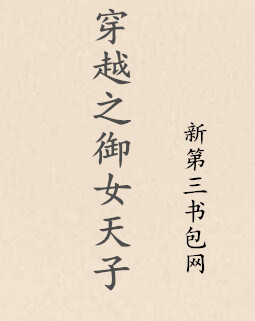 穿越之御女天子
新第三书包网